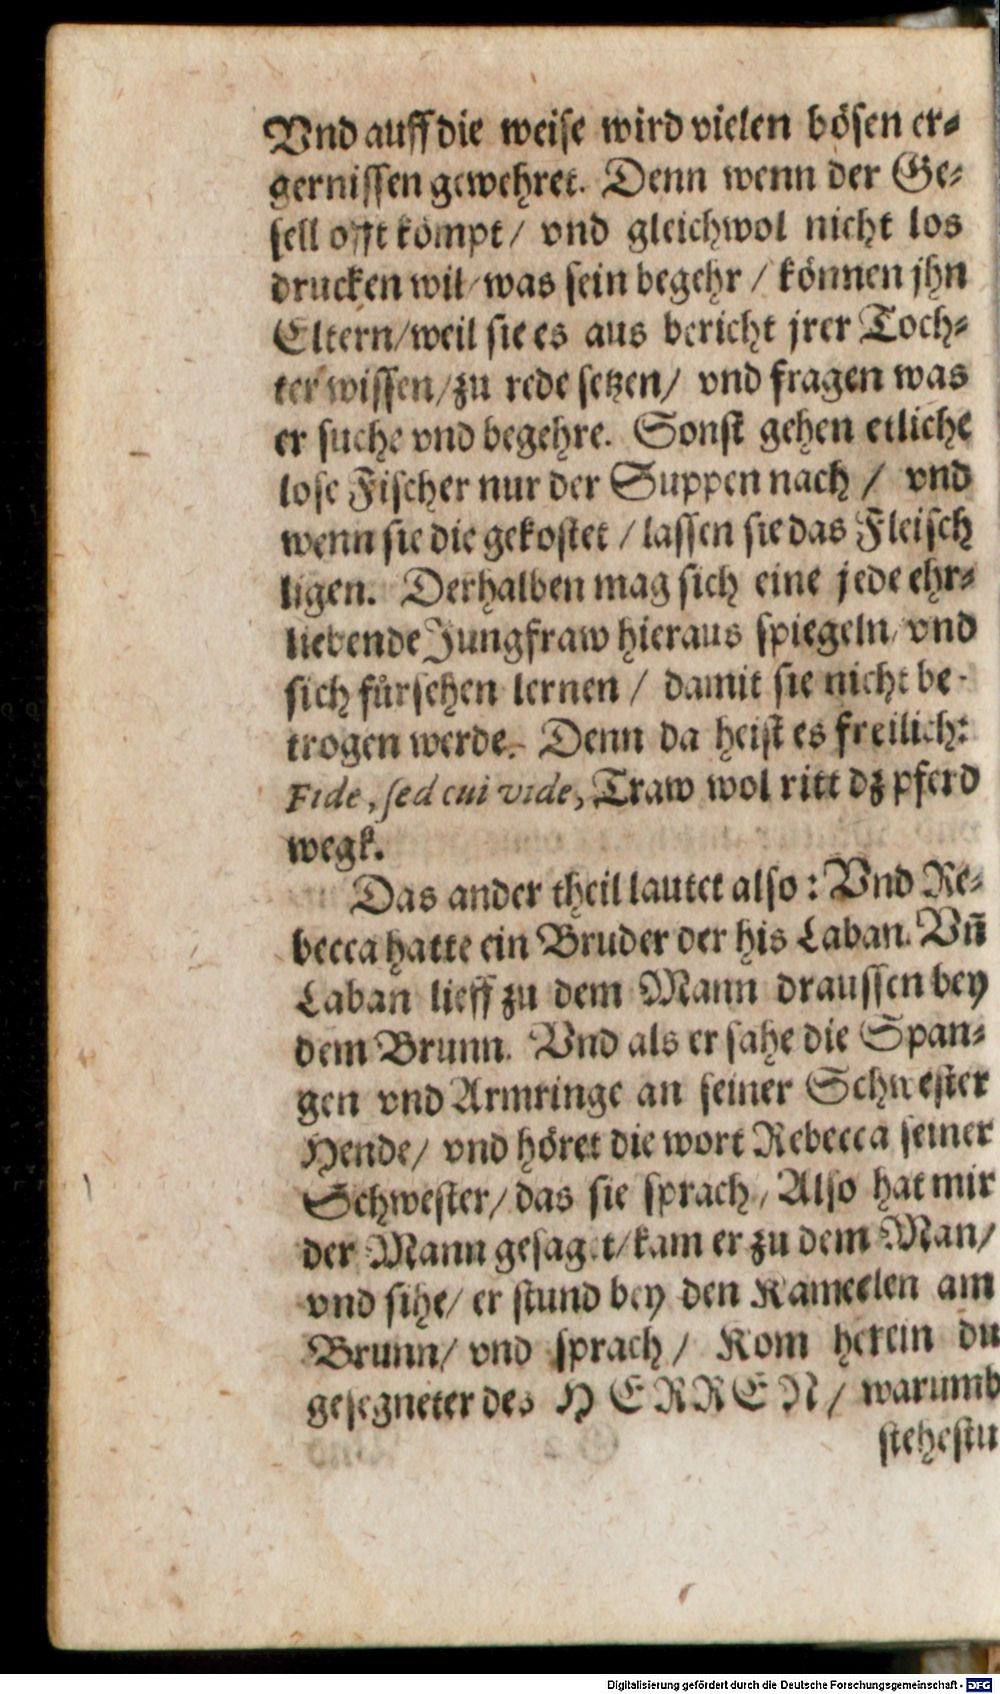 Vnd auff die weise wird vielen bösen er-
gernissen gewehret. Denn wenn der Ge-
sell offt kömpt / vnd gleichwol nicht los
drucken wil / was sein begehr / können jhn
Eltern / weil sie es aus bericht jrer Toch-
ter wissen / zu rede setzen / vnd fragen was
er suche vnd begehre. Sonst gehen etliche
lose Fischer nur der Suppen nach / vnd
wenn sie die gekostet / lassen sie das Fleisch
ligen. Derhalben mag sich eine jede ehr-
liebende Jungfraw hieraus spiegeln / vnd
sich fürsehen lernen / damit sie nicht be-
trogen werde. Denn da heist es freilich:
Fide, sed cui vide, Traw wol ritt dz pferd
wegk.
Das ander theil lautet also: Vnd Re-
becca hatte ein Bruder der his Laban. Vñ
Laban lieff zu dem Mann draussen bey
dem Brunn. Vnd als er sahe die Span-
gen vnd Armringe an seiner Schwester
Hende / vnd höret die wort Rebecca seiner
Schwester / das sie sprach / Also hat mir
der Mann gesaget / kam er zu dem Man /
vnd sihe / er stund bey den Kameelen am
Brunn / vnd sprach / Kom herein du
gesegneter des HERREN / warumb
stehestu
Digitalisierung gefördert durch die Deutsche Forschungsgemeinschaft - DFG